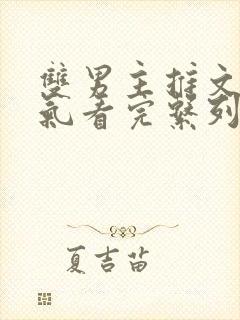 雙男主推文
氣看完繫列
夏吉苗